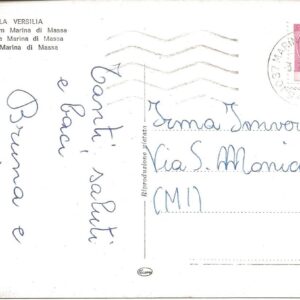 LA VERSILIA
Marina di Massa
Marina di Massa
Marina di Massa
Tanti saluti
e baci
Bruna e
Riproduzione vietata
MARIN
Irma
Via S. Monic
(MI)